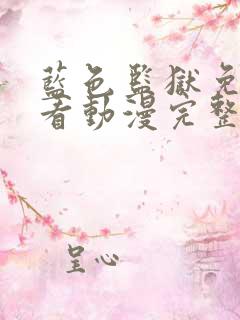 藍色監獄免
看動漫完整
呈心